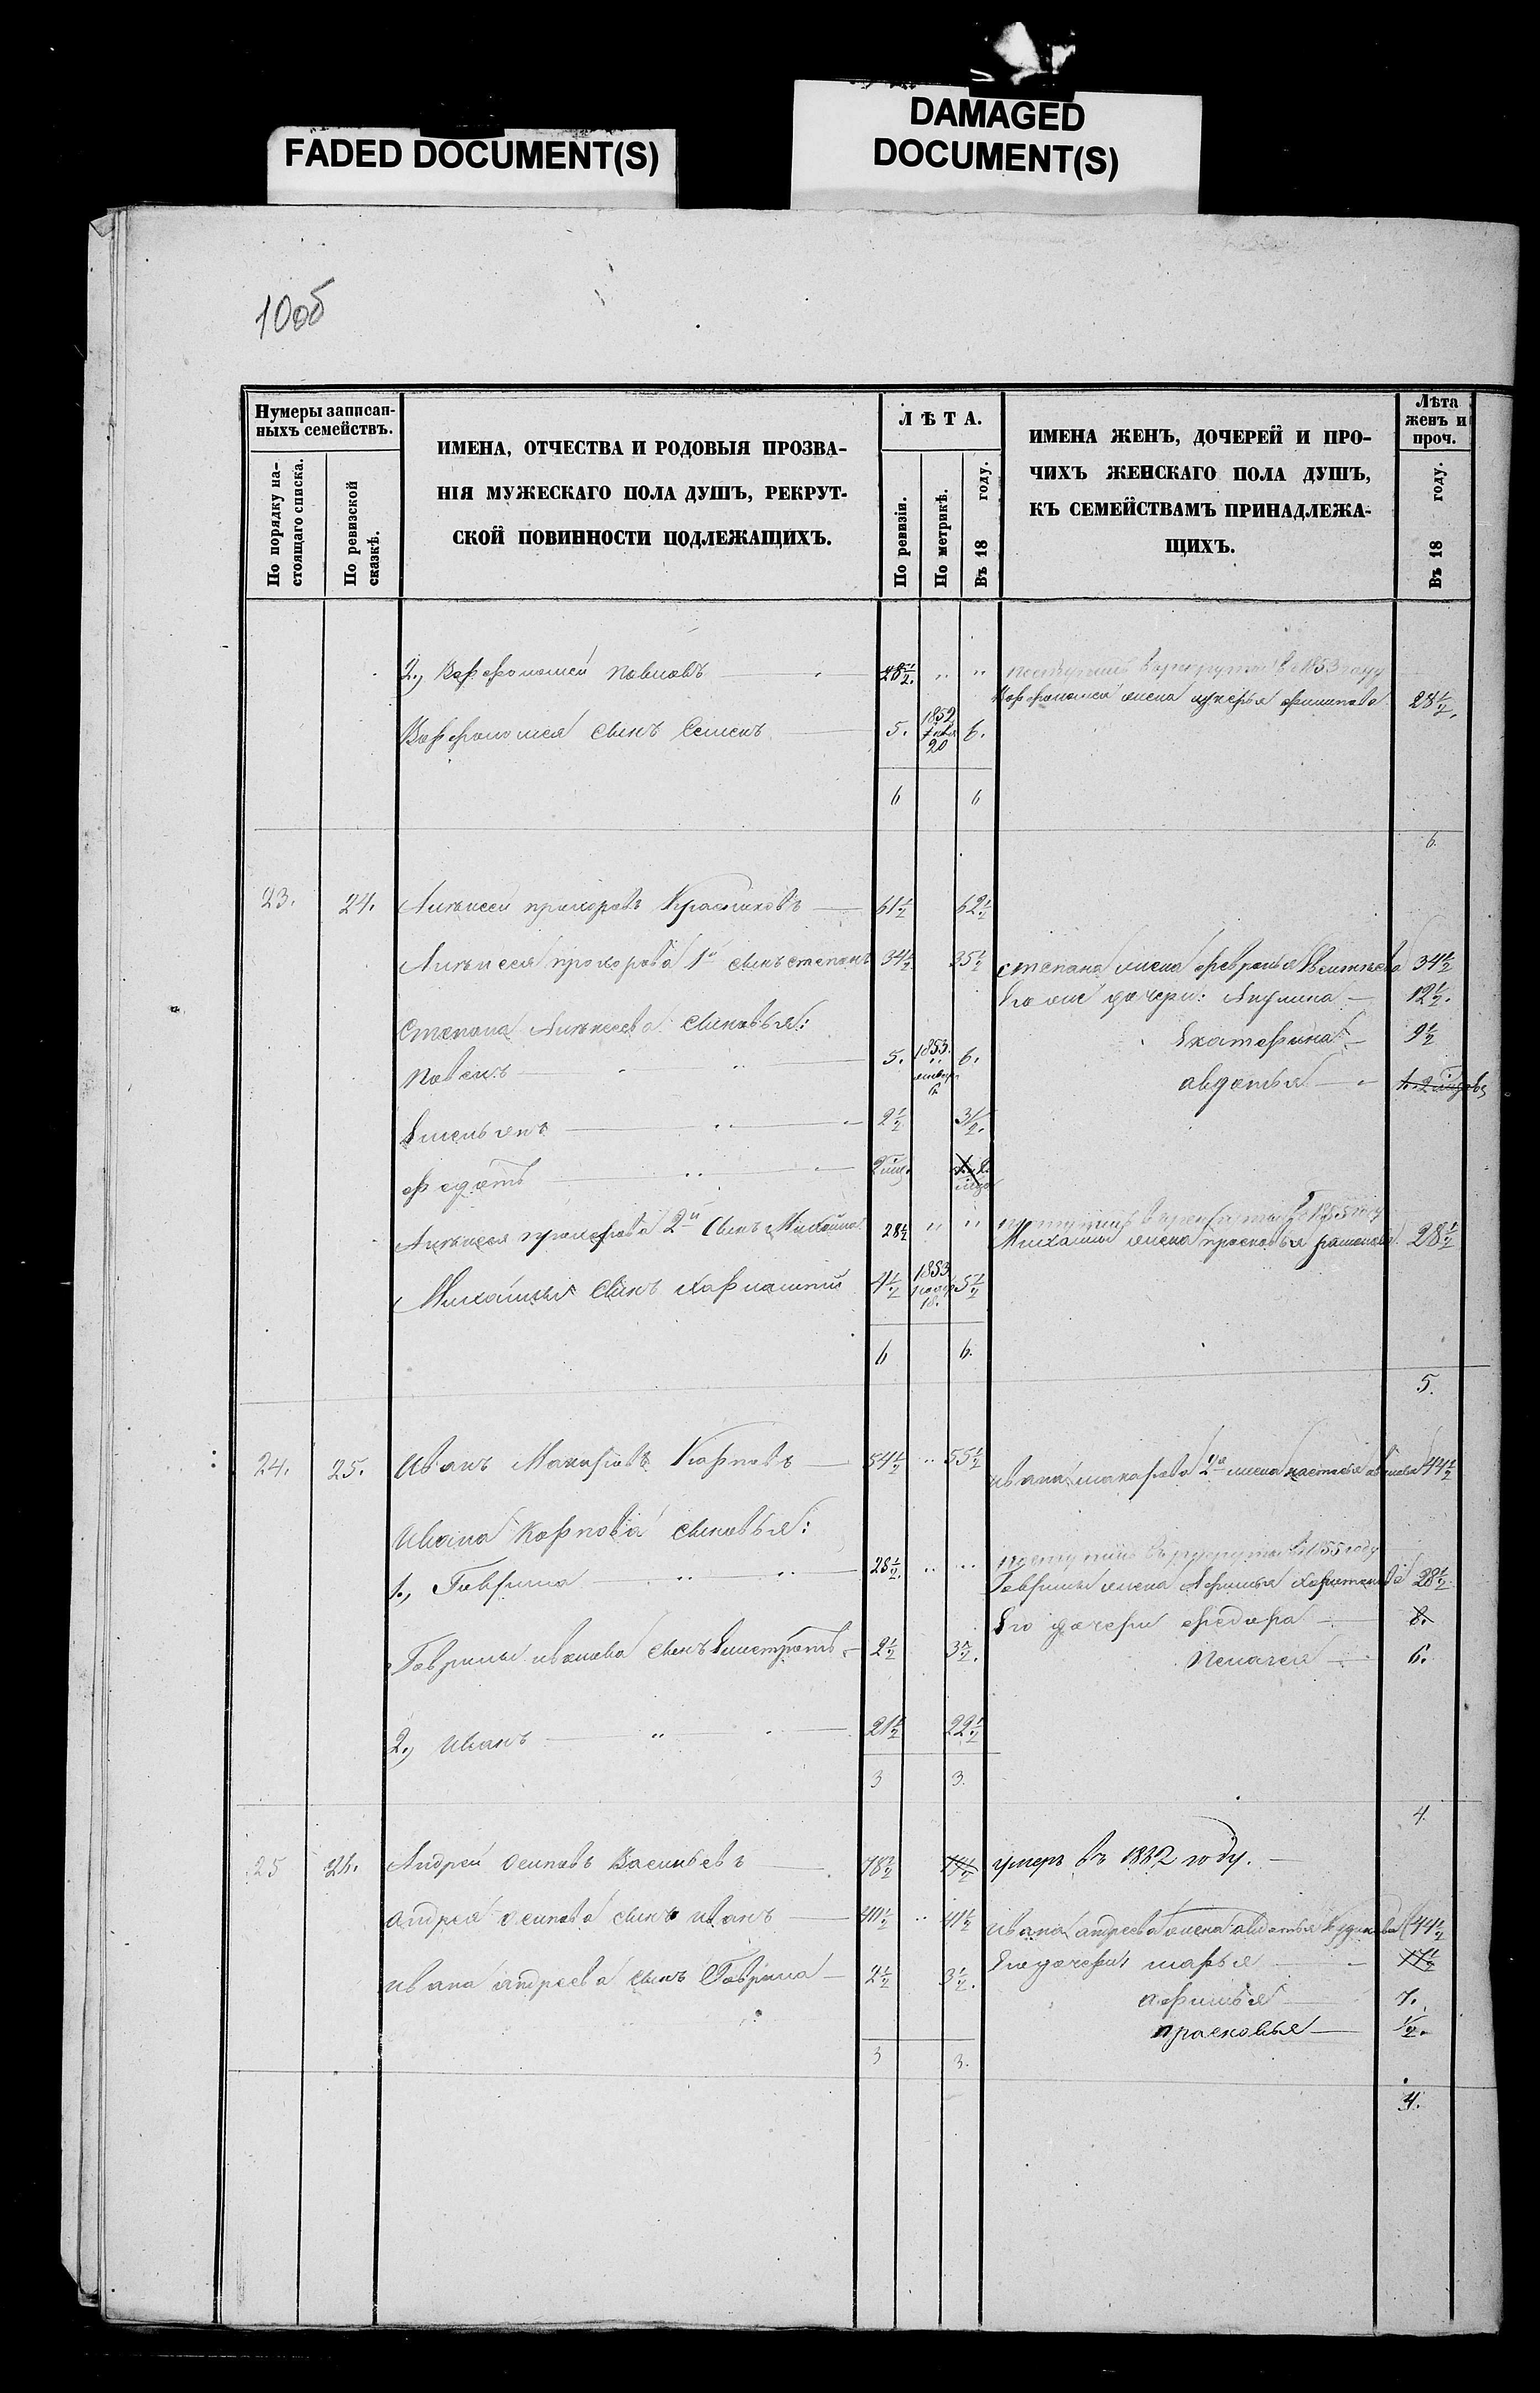 FADED DOCUMENT(S)
DAMAGED
DOCUMENT(S)
10об
Нумеры записан-
ныхъ семействъ.
По порядку на-
стоящаго списка.
По ревизской
сказкѣ.
ИМЕНА, ОТЧЕСТВА И РОДОВЫЯ ПРОЗВА-
НІЯ МУЖЕСКАГО ПОЛА ДУШЪ, РЕКРУТ-
СКОЙ ПОВИННОСТИ ПОДЛЕЖАЩИХЪ.
ЛѢТА.
По ревизіи.
По метрикѣ.
Въ 18 году.
ИМЕНА ЖЕНЪ, ДОЧЕРЕЙ И ПРО-
ЧИХЪ ЖЕНСКАГО ПОЛА ДУШЪ,
КЪ СЕМЕЙСТВАМЪ ПРИНАДЛЕЖА-
ЩИХЪ.
Лѣта
женъ и
проч.
Въ 18 году.
2., Варфоломей Павловъ 28½. " " поступилъ в рекруты в 1853 году
Варфоломея жена лукерья филипова 28½.
Варфоломея сынъ Семенъ 5. 1852 20 6.
6 6
6.
23. 24. Алексей прохоровъ Красниковъ 61½ 62½
Алексея прохорова 1й сынъ степанъ 34½ 35½ степана жена февронья 34½
Его же дочери: Акулина 12½.
Степана Алексеева сыновья: Екатерина 9½
Павелъ 5. 1853. январ. 6. авдотья
Емельянъ 2½ 3½.
федотъ
Алексея прохорова 2й сынъ Михайла 28½ " " поступилъ в рекруты в 1855 году
Михайлы жена прасковья 28½
Михайлы сынъ харлампий 4½ 1853 18. 5½
6 6.
5.
24. 25. Иванъ Макаровъ Карповъ 54½ .. 55½ ивана макарова 2я жена настасья 44½
Ивана Карпова сыновья:
1., Гаврила 28½. .. .. поступилъ въ рекруты в 1855 году
Гаврилы жена Афимья харитонова 28½
Его дочери федора 8.
Гаврилы иванова сынъ Елистратъ 2½ 3½. Пелагея 6.
2., Иванъ 21½ 22½
3 3.
4.
25 26. Андрей осиповъ Васильевъ 78½ умеръ въ 1832 году.
андрея осипова сынъ иванъ 40½ .. 41½ ивана андреева жена авдотья 44½
Его дочери: марья 17½
ивана андреева сынъ Гаврила 2½ 3½. афимья 7.
прасковья ½.
3 3.
4.